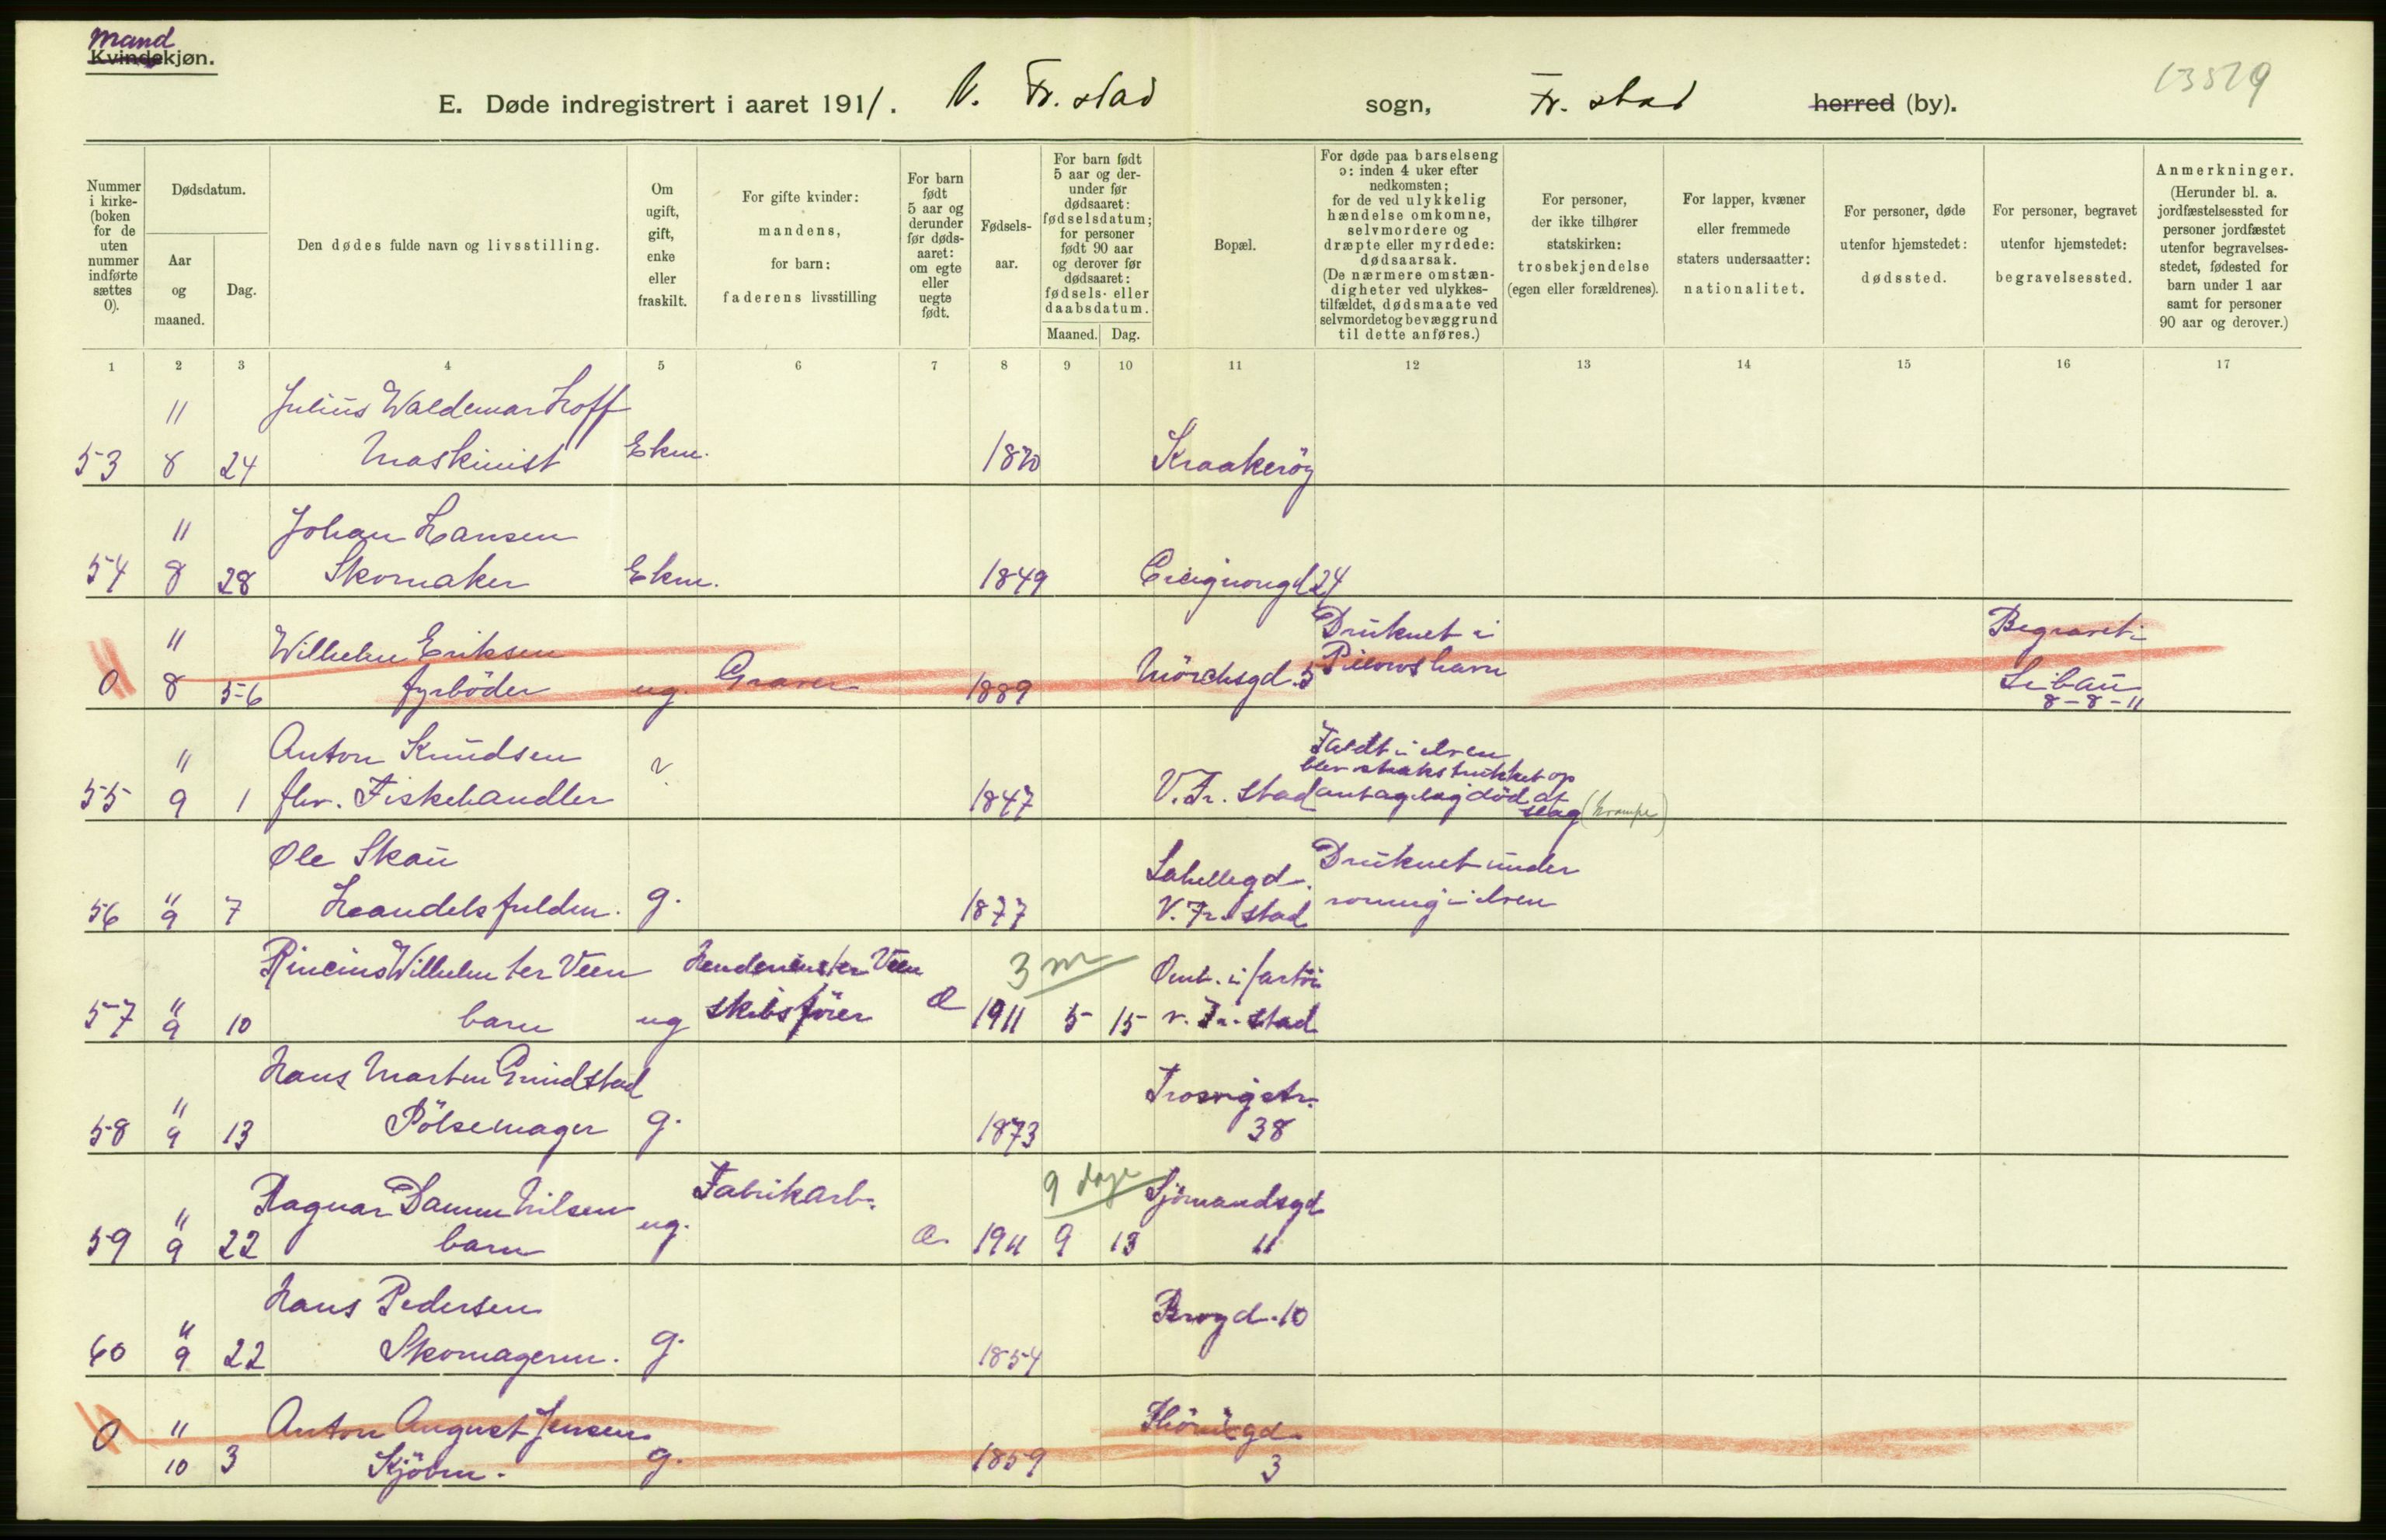 Mand
Kvindekjøn.
E. Døde indregistrert i aaret 1911. V. Fr. stad sogn, Fr. stad herred (by).
13519
Nummer i kirke- (boken for de uten nummer indførte sættes 0).
Dødsdatum.
Aar og maaned.
Dag.
Den dødes fulde navn og livsstilling.
Om ugift, gift, enke eller fraskilt.
For gifte kvinder: mandens, for barn: faderens livsstilling
For barn født 5 aar og derunder før døds- aaret: om egte eller uegte født.
Fødsels- aar.
For barn født 5 aar og der- under før dødsaaret: fødselsdatum; for personer født 90 aar og derover før dødsaaret: fødsels- eller daabsdatum.
Maaned. Dag.
Bopæl.
For døde paa barselseng ɔ: inden 4 uker efter nedkomsten; for de ved ulykkelig hændelse omkomne, selvmordere og dræpte eller myrdede: dødsaarsak. (De nærmere omstæn- digheter ved ulykkes- tilfældet, dødsmaate ved selvmordet og bevæggrund til dette anføres.)
For personer, der ikke tilhører statskirken: trosbekjendelse (egen eller forældrenes).
For lapper, kvæner eller fremmede staters undersaatter: nationalitet.
For personer, døde utenfor hjemstedet: dødssted.
For personer, begravet utenfor hjemstedet: begravelsessted.
Anmerkninger. (Herunder bl. a. jordfæstelsessted for personer jordfæstet utenfor begravelses- stedet, fødested for barn under 1 aar samt for personer 90 aar og derover.)
1 2 3 4 5 6 7 8 9 10 11 12 13 14 15 16 17
11 Julius Waldemar Hoff
53 8 24 Maskinist Ekm. 1870 Kraakerøy
11 Johan Hansen
54 8 28 Skomaker Ekm. 1849 Cicignongd 24
11 Wilhelm Eriksen Druknet i Begravet i
0 8 5-6 fyrbøder ug. Graver 1889 Mörchsgd. 5 Pillows havn Libau
8-8-11
11 Anton Knudsen v Faldt i elven
blev straks trukket op
55 9 1 fhv. Fiskehandler 1847 V. Fr. stad antagelig död af
slag (krampe)
Ole Skau Lahellegd. Druknet under
56 " 9 7 Handelsfuldm. g. 1877 V. Fr. stad roning i elven
Rineius Wilhelm ter Veen ter Veen 3 m Omb. i fartöi
57 " 9 10 barn ug skibsförer Æ 1911 5 15 v. Fr. stad
Hans Martin Grindstad Trosvigstr.
58 " 9 13 Pölsemager g. 1873 38
Ragnar Damm Nilsen Fabrikarb. 9 dage Sjömandsgd
59 " 9 22 barn ug. æ. 1911 9 13 11
Hans Pedersen Brogd. 10
60 " 9 22 Skomagerm. g. 1854
0 11 Anton August Jensen
10 3 Kjöbm. g. 1859 3